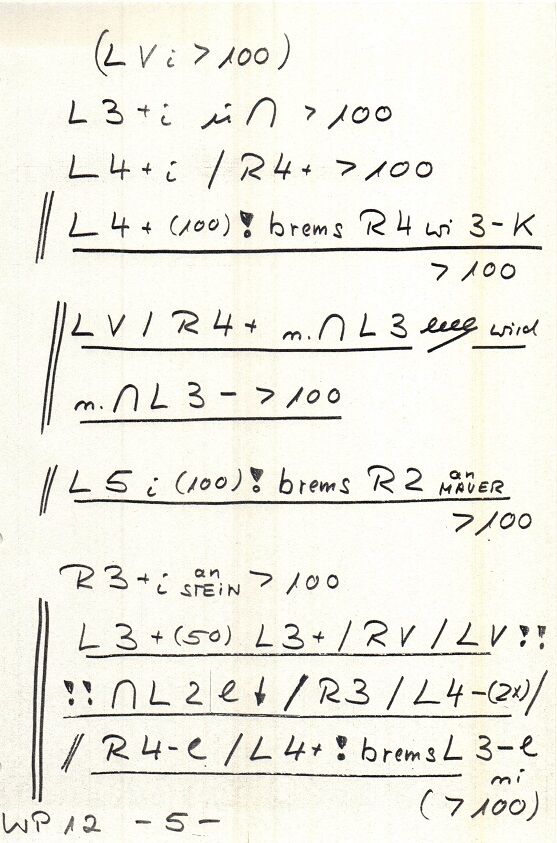 (L V i > 100)
L 3 + i ü ∩ > 100
L 4 + i / R 4 + > 100
L 4 + (100) ! brems R 4 wi 3 - K
> 100
L V / R 4 + n. ∩ L 3 wird
n. ∩ L 3 - > 100
L 5 i (100) ! brems R 2 an MAUER
> 100
R 3 + i an STEIN > 100
L 3 + (50) L 3 + / R V / L V !!
!! ∩ L 2 e ↓ / R 3 / L 4 - (2x) /
/ R 4 - e / L 4 + ! brems L 3 - e
mi
( > 100)
WP 12 - 5 -